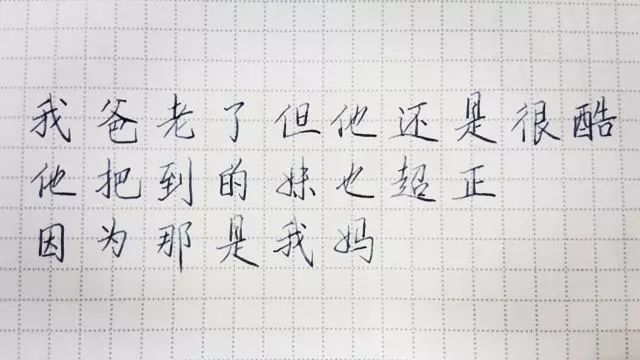 我爸老了但他还是很酷
他把到的妹也超正
因为那是我妈